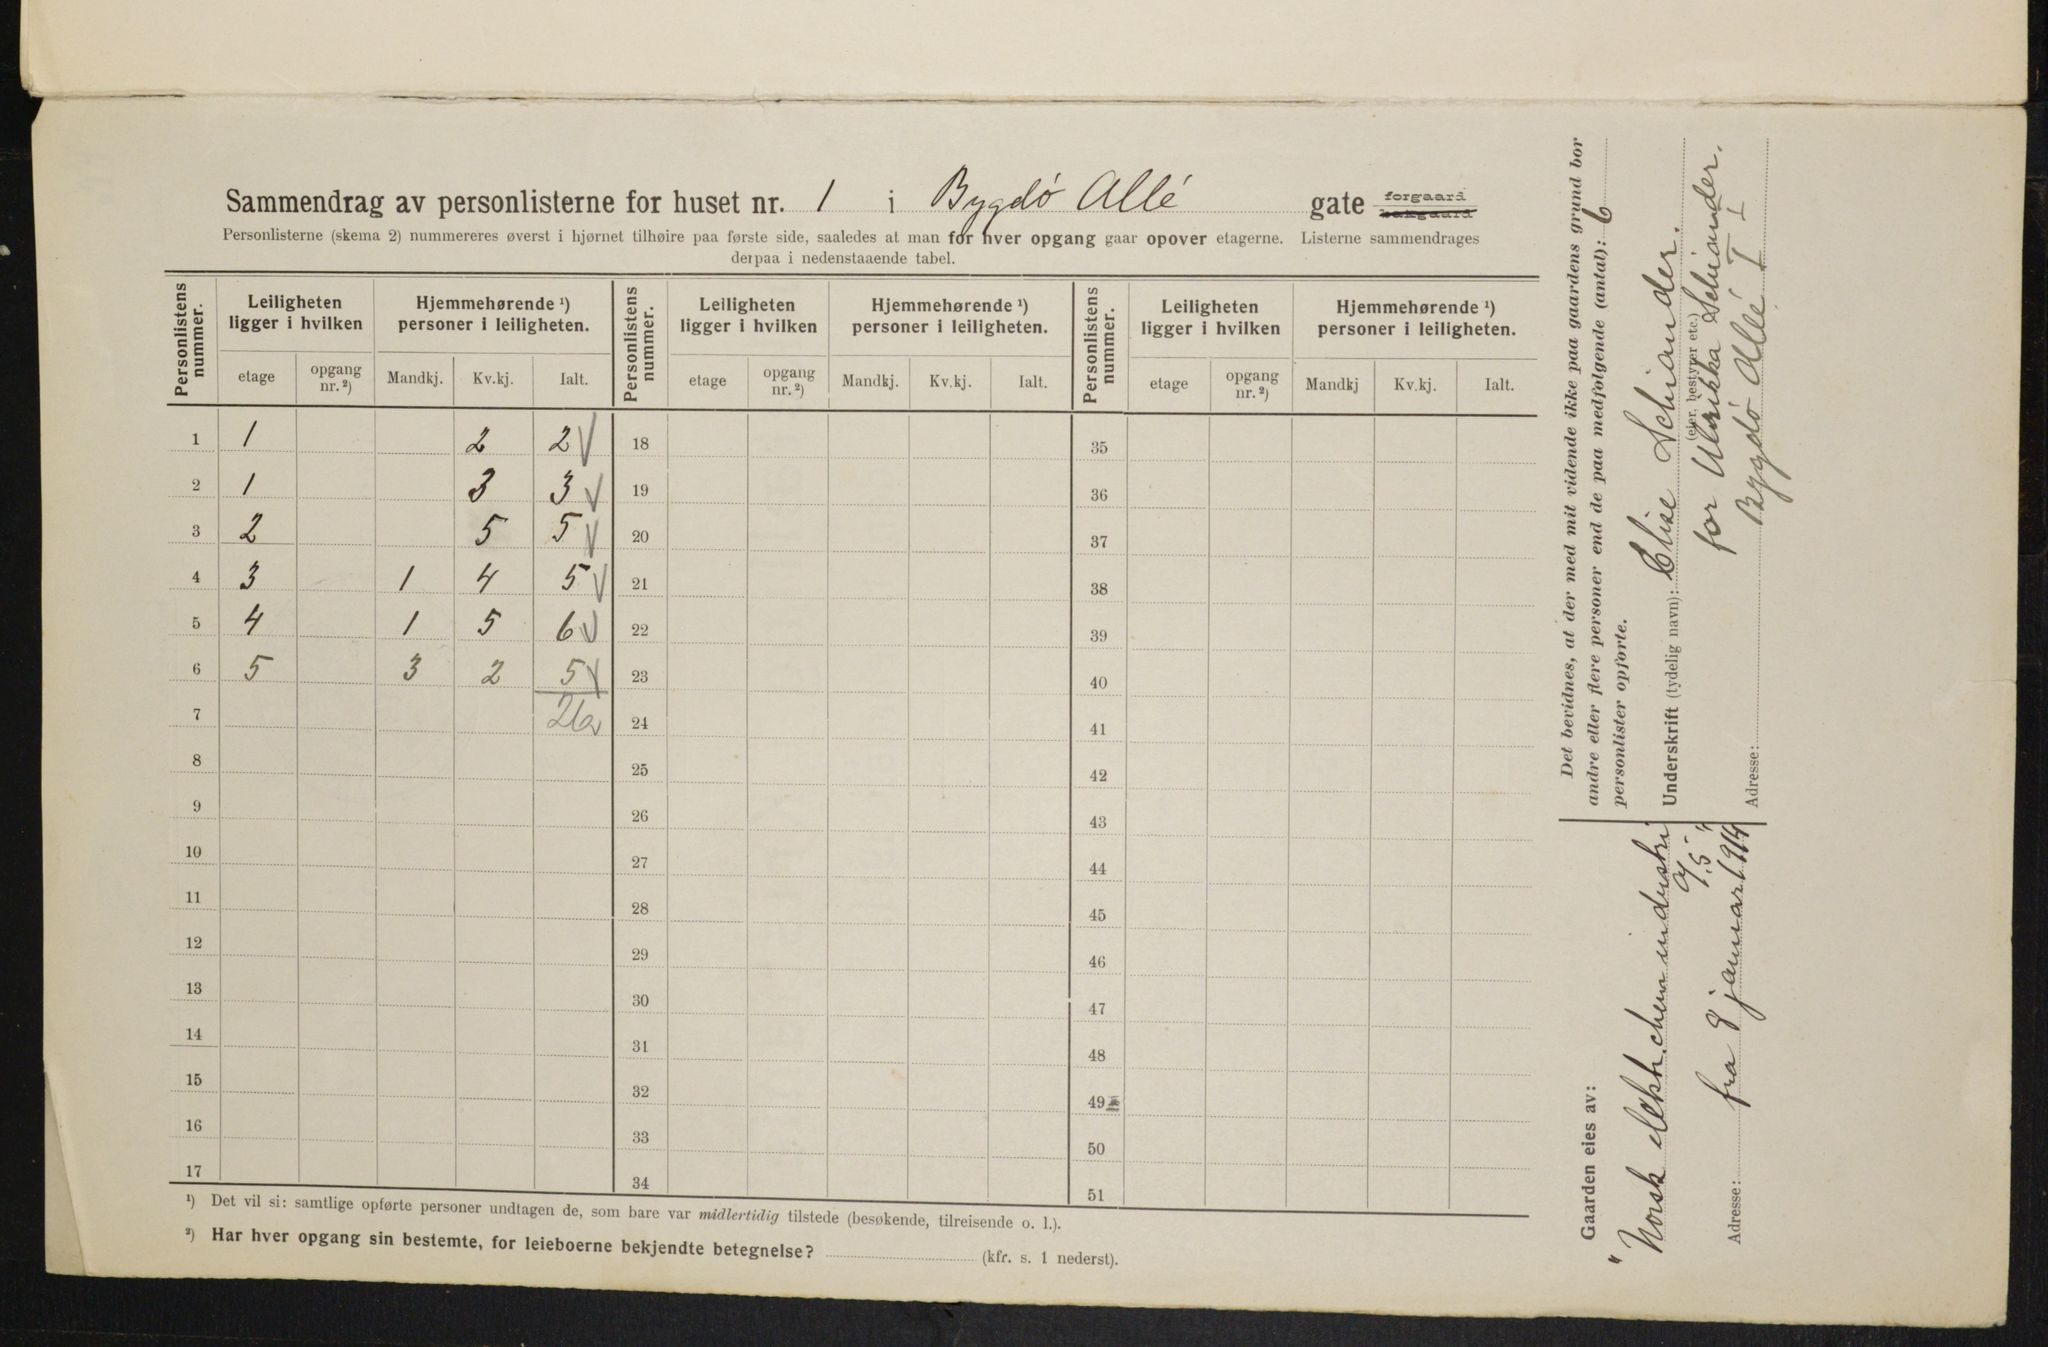 Sammendrag av personlisterne for huset nr. 1 i Bygdö Allé gate forgaard
bakgaard
Personlisterne (skema 2) nummereres øverst i hjørnet tilhøire paa første side, saaledes at man for hver opgang gaar opover etagerne. Listerne sammendrages
derpaa i nedenstaaende tabel.
Personlistens nummer. Leiligheten ligger i hvilken Hjemmehørende ¹) personer i leiligheten. Personlistens nummer. Leiligheten ligger i hvilken Hjemmehørende ¹) personer i leiligheten. Personlistens nummer. Leiligheten ligger i hvilken Hjemmehørende ¹) personer i leiligheten.
etage opgang nr. ²) Mandkj. Kv.kj. Ialt. etage opgang nr. ²) Mandkj. Kv.kj. Ialt. etage opgang nr. ²) Mandkj Kv.kj. Ialt.
1 1 2 2 18 35
2 1 3 3 19 36
3 2 5 5 20 37
4 3 1 4 5 21 38
5 4 1 5 6 22 39
6 5 3 2 5 23 40
7 26 24 41
8 25 42
9 26 43
10 27 44
11 28 45
12 29 46
13 30 47
14 31 48
15 32 49
16 33 50
17 34 51
¹) Det vil si: samtlige opførte personer undtagen de, som bare var midlertidig tilstede (besøkende, tilreisende o. l.).
²) Har hver opgang sin bestemte, for leieboerne bekjendte betegnelse? (kfr. s. 1 nederst).
Det bevidnes, at der med mit vidende ikke paa gaardens grund bor
andre eller flere personer end de paa medfølgende (antal): 6
personlister opførte.
Underskrift (tydelig navn): Elise Schiander.
(eier, bestyrer etc.)
for Ulrikka Schiander.
Adresse: Bygdö Allé 1 I
Gaarden eies av:
"Norsk elektr. chem industri
A/S"
fra 8 januar 1914
Adresse: